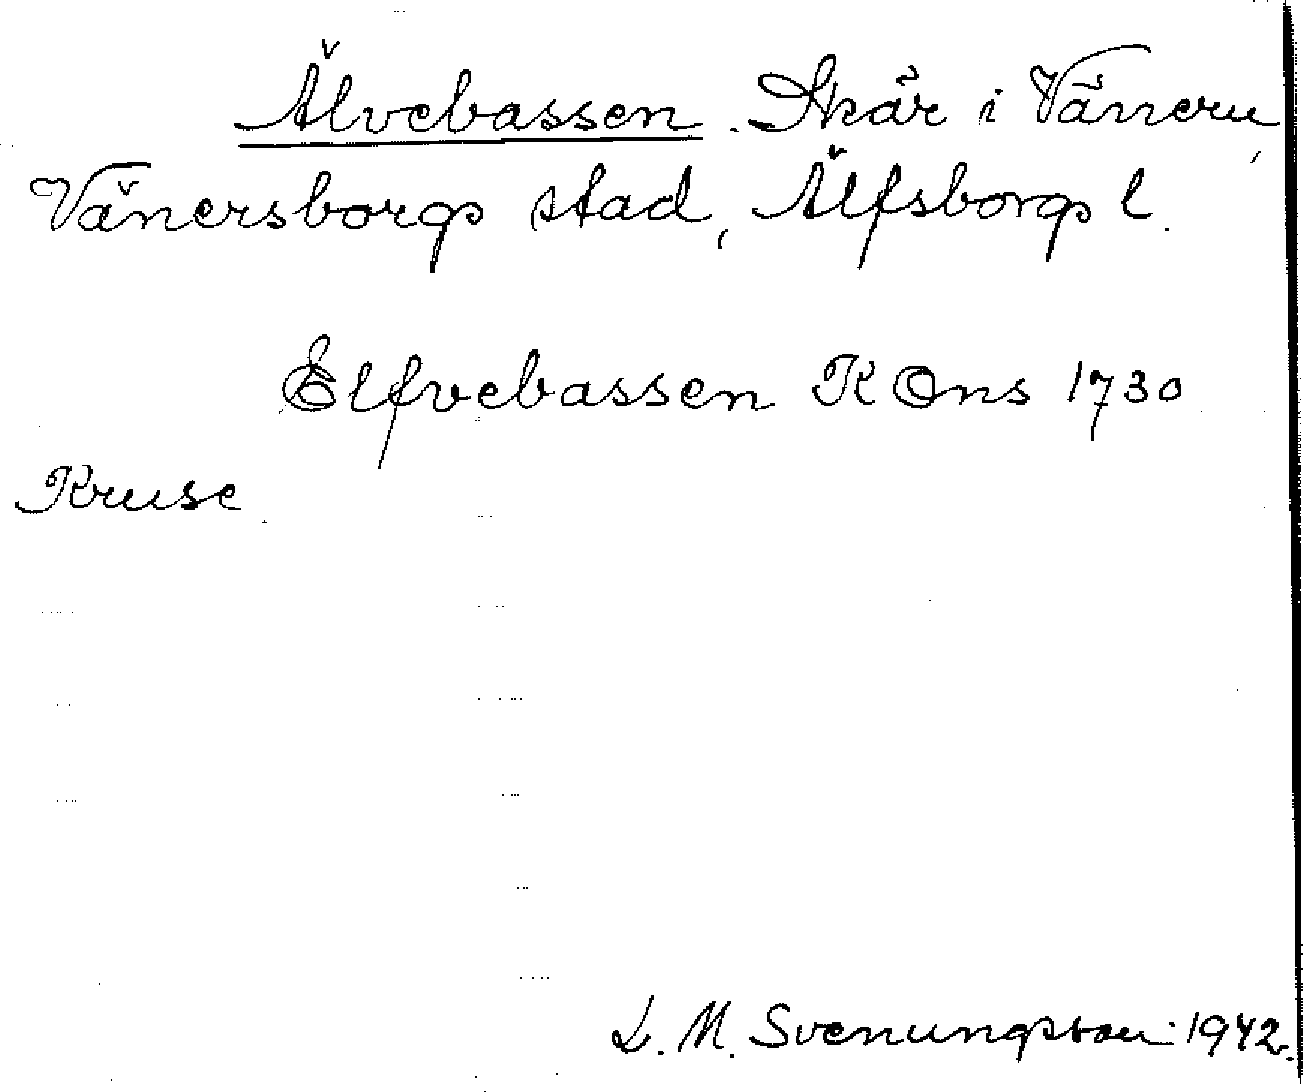 Älvebassen. Skär i Vänern,
Vänersborgs stad, Älfsborgs l.
Elfvebassen K Ons 1730
Kruse.
L. M. Svenungsson 1942.